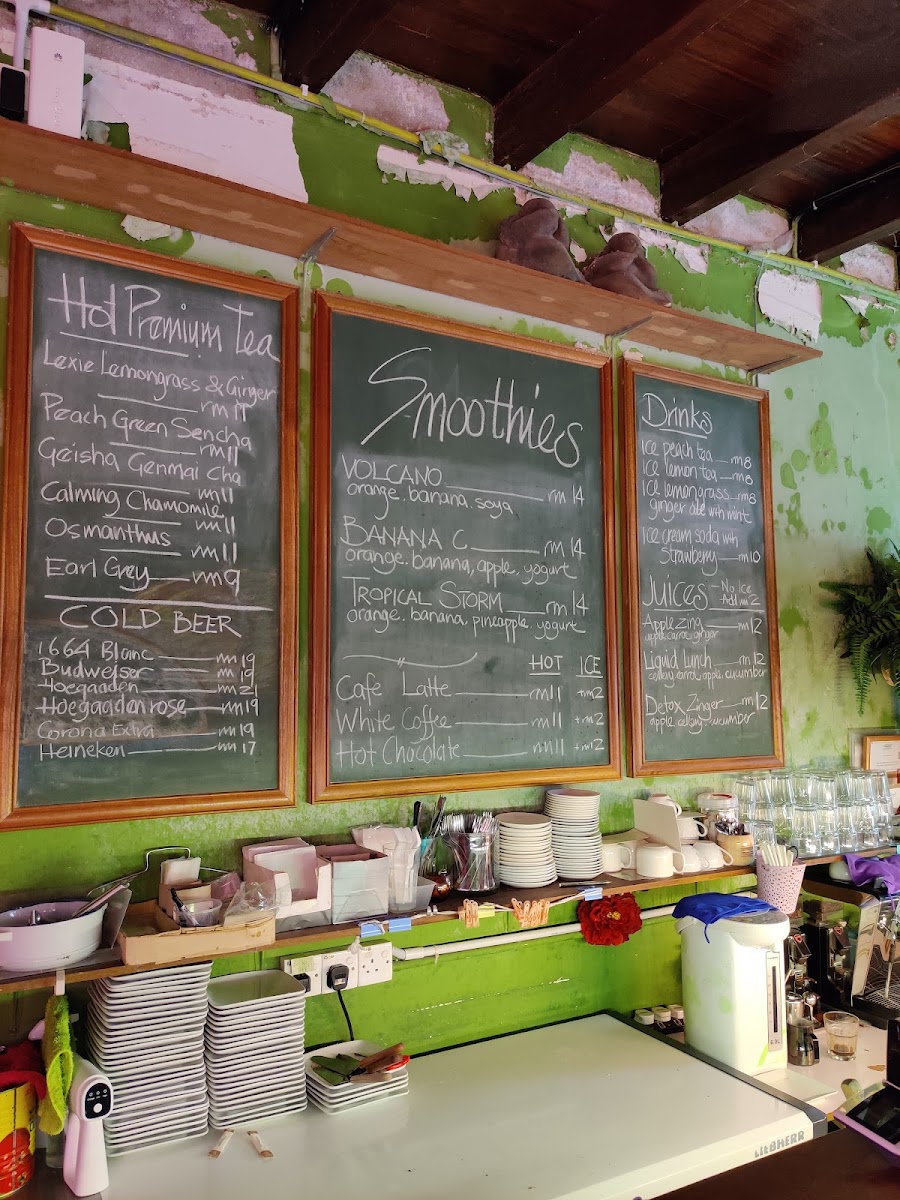 Hot Premium Tea
Lexie Lemongrass & Ginger
rm 11
Peach Green Sencha
rm 11
Geisha Genmai Cha
rm 11
Calming Chamomile
rm 11
Osmanthus rm 11
Earl Grey rm 9
COLD BEER
1664 Blanc rm 19
Budweiser rm 19
Hoegaaden rm 21
Hoegaaden rose rm 19
Corona Extra rm 19
Heineken rm 17
Smoothies
VOLCANO rm 14
orange. banana. soya
BANANA C rm 14
orange. banana, apple, yogurt
TROPICAL STORM rm 14
orange. banana. pineapple. yogurt
HOT ICE
Cafe Latte rm 11 +rm 2
White Coffee rm 11 +rm 2
Hot Chocolate rm 11 +rm 2
Drinks
Ice peach tea rm 8
Ice lemon tea rm 8
Ice lemongrass rm 8
ginger ade with mint
Ice cream soda with
Strawberry rm 10
Juices - No Ice
Add rm 2
Apple Zing rm 12
apple, carrot, ginger
Liquid Lunch rm 12
celery, carrot, apple, cucumber
Detox Zinger rm 12
apple, celery, cucumber
LIEBHERR